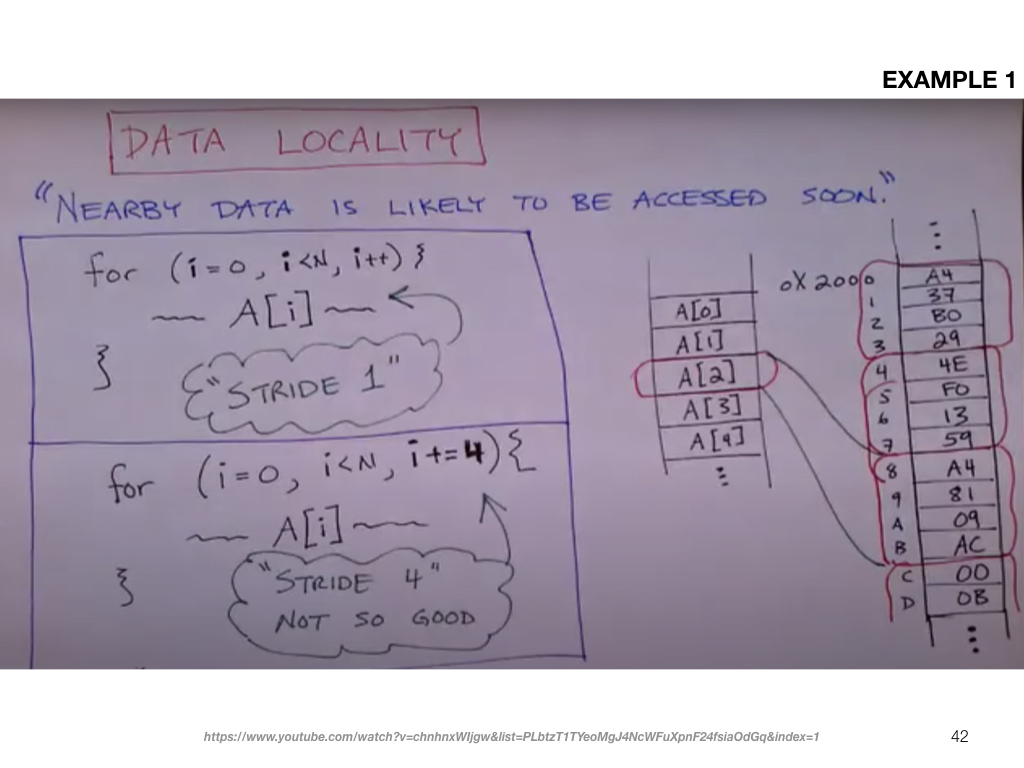 EXAMPLE 1
DATA LOCALITY
"NEARBY DATA IS LIKELY TO BE ACCESSED SOON."
for (i=0, i<N, i++) }
A[i]
}
"STRIDE 1"
for (i=0, i<N, i+=4){
A[i]
}
"STRIDE 4"
NOT SO GOOD
A[0]
A[1]
A[2]
A[3]
A[4]
⋮
⋮
0X2000 A4
1 37
2 B0
3 29
4 4E
5 F0
6 13
7 59
8 A4
9 81
A 09
B AC
C 00
D 0B
⋮
https://www.youtube.com/watch?v=chnhnxWIjgw&list=PLbtzT1TYeoMgJ4NcWFuXpnF24fsiaOdGq&index=1
42